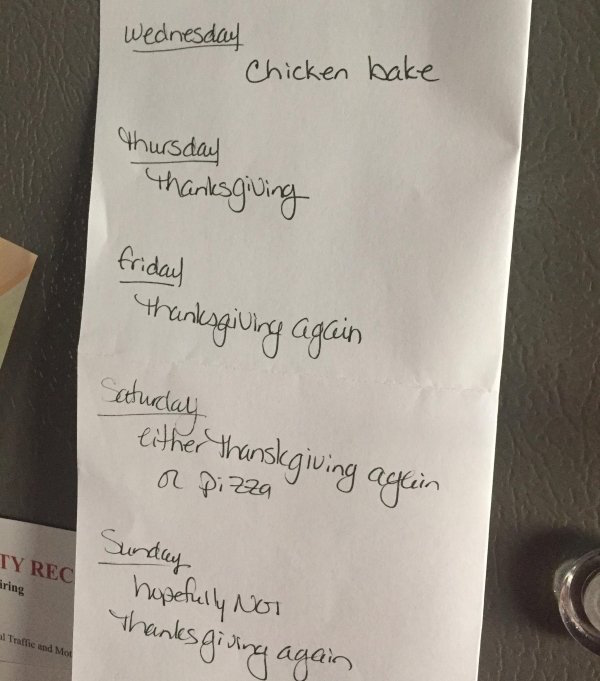 Wednesday
Chicken bake
Thursday
Thanksgiving
friday
Thanksgiving again
Saturday
either Thanskgiving again
or pizza
Sunday
hopefully NOT
Thanksgiving again
TY REC
iring
al Traffic and Mot